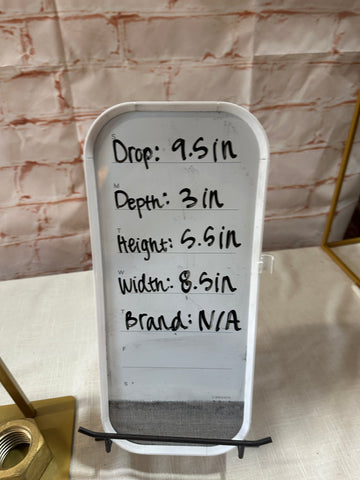 S
Drop: 9.5 in
M
Depth: 3 in
T
Height: 5.5 in
W
Width: 8.5 in
T
Brand: N/A
F
S